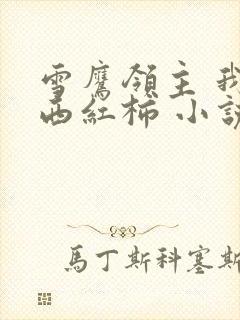 雪鷹領主 我
西紅柿 小說
馬丁斯科塞斯